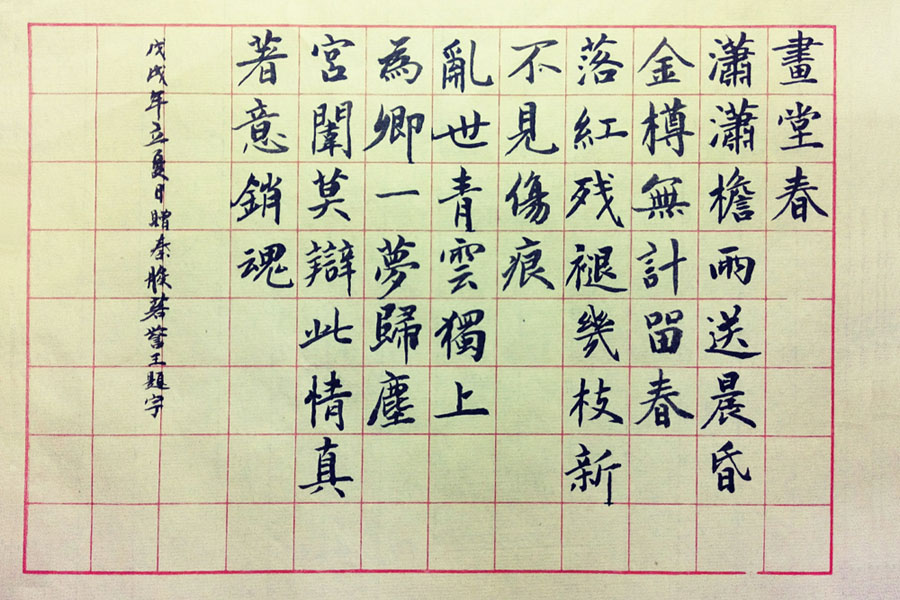 畫堂春
瀟瀟檐雨送晨昏
金樽無計留春
落紅残褪幾枝新
不見傷痕
亂世青雲獨上
為卿一夢歸塵
宮闈莫辯此情真
著意銷魂
戊戌年立夏日贈秦般若 王題字